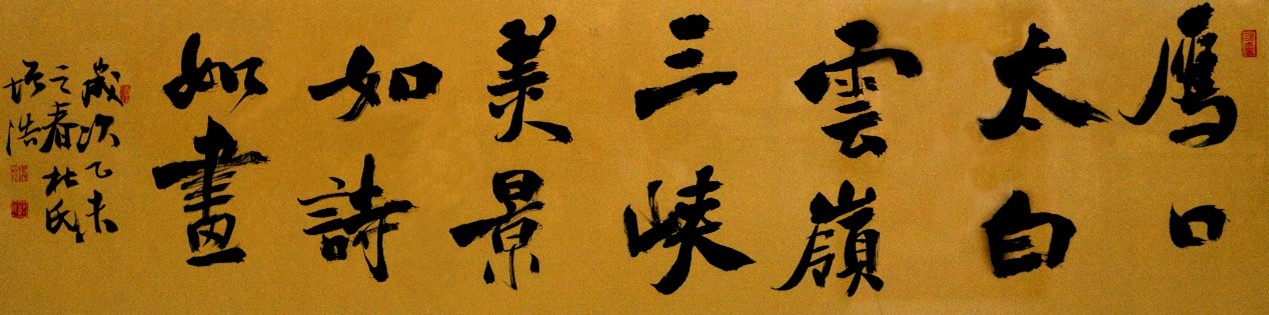 鹰口
太白
雲嶺
三峡
美景
如詩
如畫
歲次乙未
之春杜氏
增浩